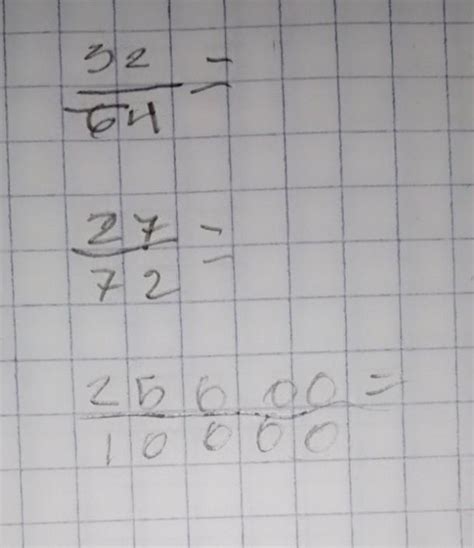 32
64 =
27
72 =
25000 =
10000